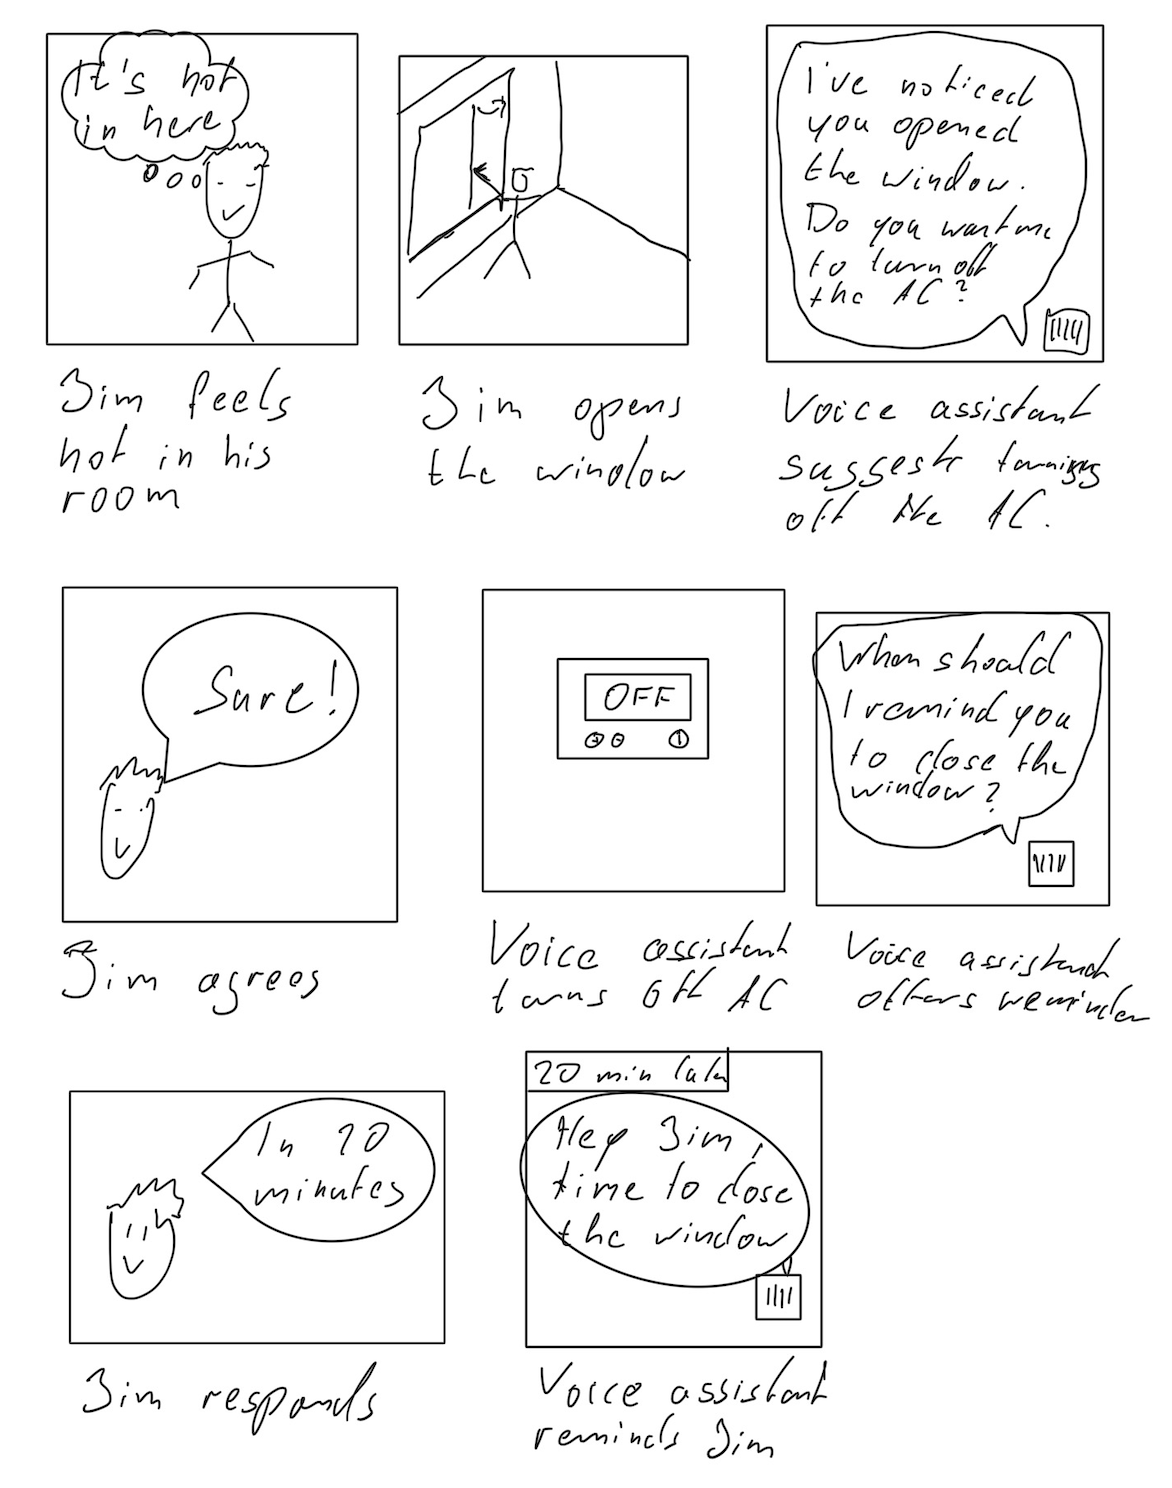 It's hot
in here
Jim feels
hot in his
room
Jim opens
the window
I've noticed
you opened
the window.
Do you want me
to turn off
the AC?
Voice assistant
suggests turning
off the AC.
Sure!
Jim agrees
OFF
Voice assistant
turns off AC
When should
I remind you
to close the
window?
Voice assistant
offers reminder
In 20
minutes
Jim responds
20 min later
Hey Jim,
time to close
the window
Voice assistant
reminds Jim